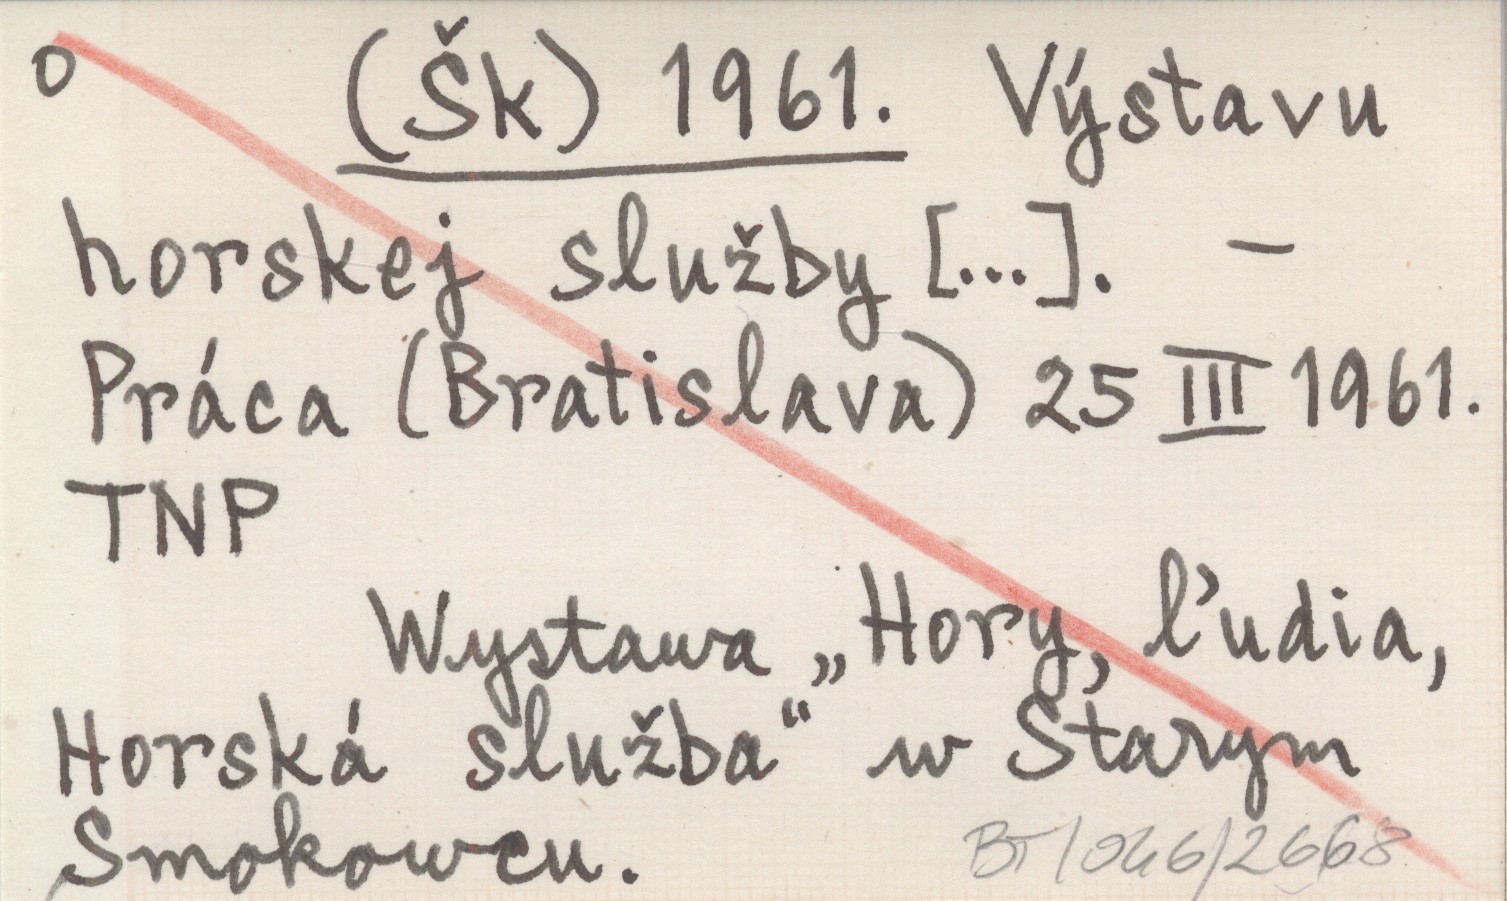 o (Šk) 1961. Výstavu
horskej služby [...]. –
Práca (Bratislava) 25 III 1961.
TNP
Wystawa „Hory, ľudia,
Horská služba“ w Starym
Smokowcu.
BT/046/2668